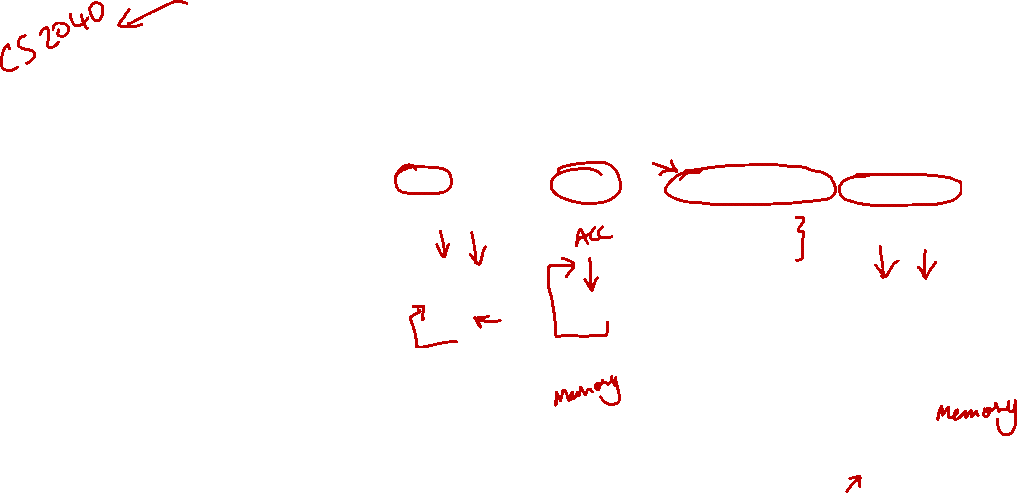 CS2040
ACC
Memory
Memory